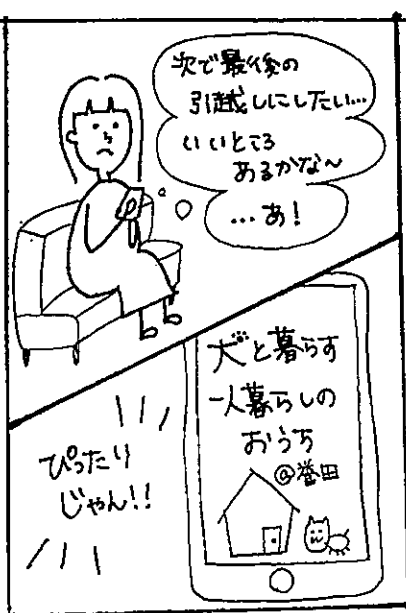 次で最後の
引越しにしたい…
いいところ
あるかな～
…あ!
犬と暮らす
一人暮らしの
おうち
@誉田
ぴったり
じゃん!!